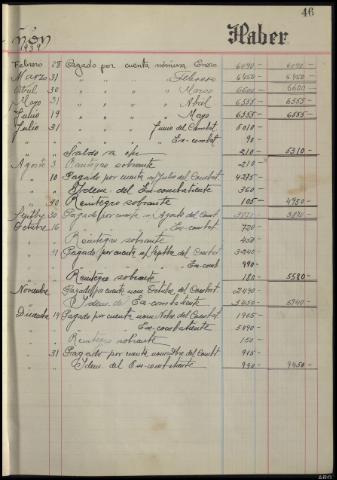 46
Haber
1939
Febrero 28 Pagado por cuenta nómina Enero 6090- 6090-
Marzo 31 " " " " Febrero 6450- 6450-
Abril 30 " " " " Marzo 6600- 6600-
Mayo 31 " " " " Abril 6555- 6555-
Junio 19 " " " " Mayo 6555- 6555-
Julio 31 " " " Junio del Combat 5010-
" " " " Ex-combat 90-
" " Saldo a 210- 5310-
Agosto 3 Reintegro sobrante 210-
" 10 Pagado por cuenta n/ Julio del Combat 4275-
" " Idem del Ex-combatiente 360-
" 30 Reintegro sobrante 105- 4950-
Septbre 30 Pagado por cuenta n/ Agosto del Combt
Octubre 16 " " " " Ex-comt 720-
" " Reintegro sobrante 450-
" 31 Pagado por cuenta n/ Septbre del Combat
" " " " Ex-comb 990-
" " Reintegro sobrante 180- 5580-
Noviembre Pagado por cuenta nom Octubre del Combat 2490-
" Idem de Ex-combatiente 3450- 5940-
Diciembre 19 Pagado por cuenta nom Novbre del Combat
" " Ex-combatiente
" " Reintegro sobrante 150-
" 31 Pagado por cuenta nom Dbre del Combat
" " Idem del Ex-combatiente 990- 9450-